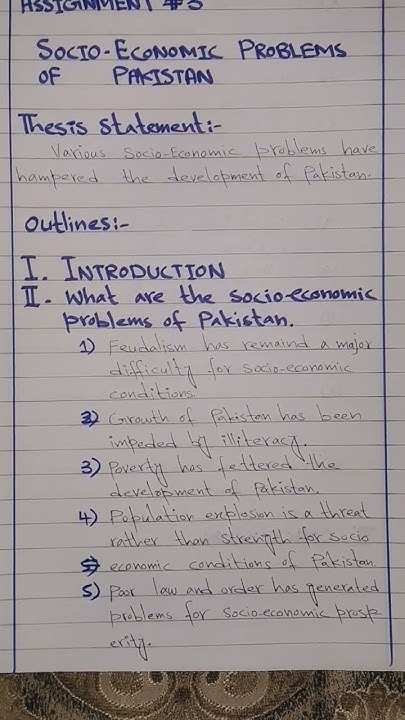 ASSIGNMENT #3
SOCIO-ECONOMIC PROBLEMS
OF PAKISTAN
Thesis Statement:-
Various Socio-Economic problems have
hampered the development of Pakistan.
Outlines:-
I. INTRODUCTION
II. What are the socio-economic
problems of Pakistan.
1) Feudalism has remaind a major
difficulty for socio-economic
conditions.
2) Growth of Pakistan has been
impeded by illiteracy.
3) Poverty has fettered the
development of Pakistan.
4) Population explosion is a threat
rather than strength for socio
economic conditions of Pakistan.
5) Poor law and order has generated
problems for socio-economic prosp-
erity.